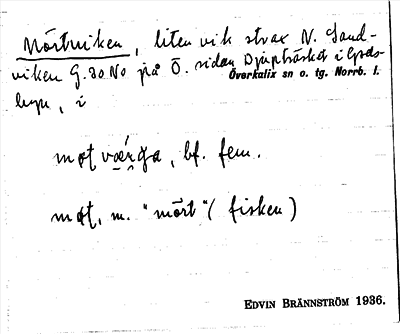 Mörtviken, liten vik strax N. Sand-
viken G.30 No på Ö. sidan Djupträsket i Gyds-
Överkalix sn o. tg. Norrb. l.
byn, i
bf. fem.
m. "mört" (fisken)
EDVIN BRÄNNSTRÖM 1936.